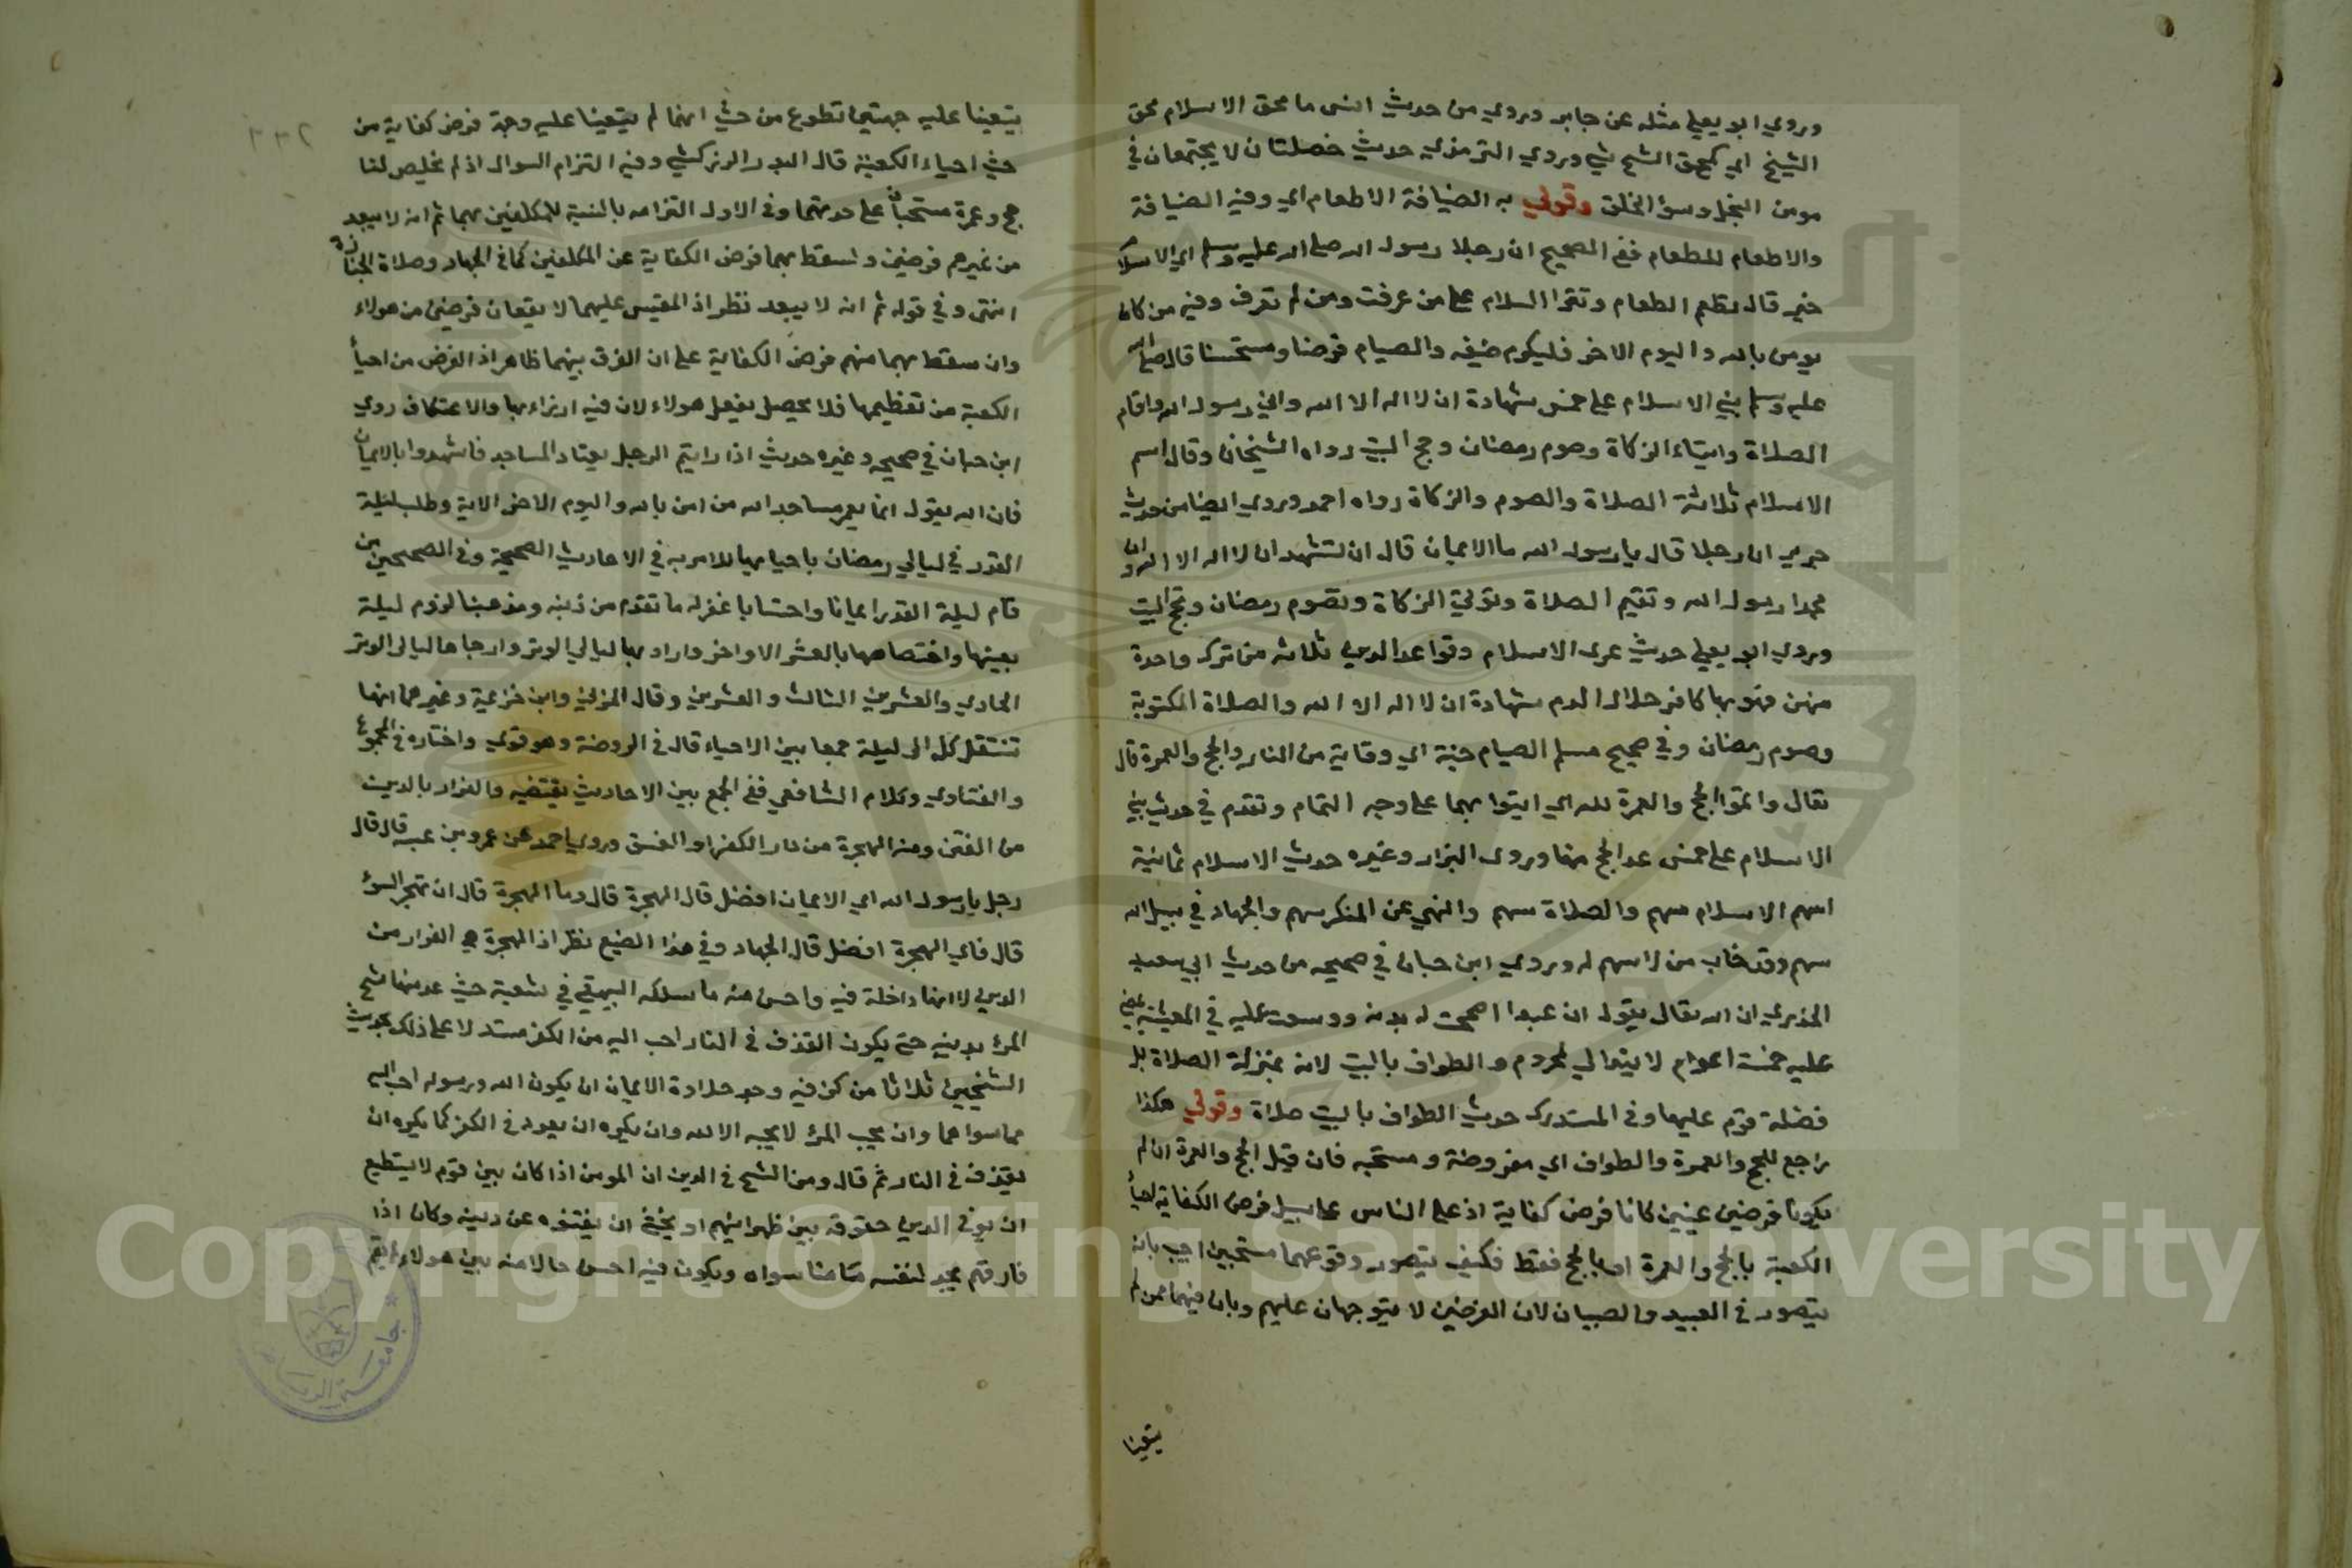 وروي ابو يعلي مثله عن جابر وروي من حديث انس ما محق الاسلام محق
الشيخ اي كمحق الشح شي وروي الترمذي حديث خصلتان لا يجتمعان في
مومن البخل وسؤ الخلق وقولي به الضيافة الاطعام اي وفيه الضيافة
والاطعام للطعام ففي الصحيح ان رجلا رسول الله صلى الله عليه وسلم اي الاسلام
خير قال تطعم الطعام وتقرا السلام على من عرفت ومن لم تعرف وفيه من كان
يومن بالله واليوم الاخر فليكرم ضيفه والصيام فرضا ومستحسنا قال صلى الله
عليه وسلم بني الاسلام على خمس شهادة ان لا اله الا الله واني رسول الله واقام
الصلاة وايتاء الزكاة وصوم رمضان وحج البيت رواه الشيخان وقال اسم
الاسلام ثلاثة الصلاة والصوم والزكاة رواه احمد وروي ايضا من حديث
جرير ان رجلا قال يا رسول الله ما الايمان قال ان تشهد ان لا اله الا الله وان
محمدا رسول الله وتقيم الصلاة وتؤتي الزكاة وتصوم رمضان وتحج البيت
وروي ابو يعلي حديث عرى الاسلام وقواعد الدين ثلاثه من ترك واحدة
منهن فهو بها كافر حلال الدم شهادة ان لا اله الا الله والصلاة المكتوبة
وصوم رمضان وفي صحيح مسلم الصيام جنة اي وقاية من النار والحج والعمرة قال
تعالى واتموا الحج والعمرة لله اي ايتوا بهما على وجه التمام وتقدم في حديث بني
الاسلام على خمس عد الحج منها وروى البزار وغيره حديث الاسلام ثمانية
اسهم الاسلام سهم والصلاة سهم والنهي عن المنكر سهم والجهاد في سبيل الله
سهم وقد خاب من لا سهم له وروي ابن حبان في صحيحه من حديث ابي سعيد
الخدري ان الله تعالى يقول ان عبدا اصححت له بدنه ووسعت عليه في المعيشة تمضي
عليه خمسة اعوام لا يفد الي لمحروم والطواف بالبيت لانه بمنزلة الصلاة بل
فضله قوم عليها وفي المستدرك حديث الطواف بالبيت صلاة وقولي هكذا
راجع للحج والعمرة والطواف اي مفروضة ومستحبه فان قيل الحج والعمرة ان لم
يكونا فرضين عينيين كانا فرض كفاية اذ على الناس على سبيل فرض الكفاية احيأ
الكعبة بالحج والعمرة او بالحج فقط فكيف يتصور وقوعهما مستحبين اجيب بانه
يتصور في العبيد والصبيان لان الفرضين لا يتوجهان عليهم وبان فيهما ممن لم
يتعينا
يتعينا عليه جهتين تطوع من حيث انهما لم يتعينا عليه وجهة فرض كفاية من
حيث احياء الكعبة قال البدر الزركشي وفيه التزام السوال اذ لم يخلص لنا
حج وعمرة مستحبان على حدتهما وفي الاول التزامه بالنسبة للمكلفين بهما ثم انه لا يبعد
من غيرهم فرضين وسقط بهما فرض الكفاية عن المكلفين كما في الجهاد وصلاة الجنازة
انتهى وفي قوله ثم انه لا يبعد نظر اذ المقيس عليهما لا يقعان فرضين من هولاء
وان سقط بهما منهم فرض الكفاية على ان الفرق بينهما ظاهر اذ الغرض من احيأ
الكعبة من تعظيمها فلا يحصل بفعل هولاء لان فيه ازراء بها والاعتكاف روي
ابن حبان في صحيحه وغيره حديث اذا رايتم الرجل يعتاد المساجد فاشهدوا بالايمان
فان الله يقول انما يعمر مساجد الله من امن بالله واليوم الاخر الاية وطلب ليلة
القدر في ليالي رمضان باحيايها للامر به في الاحاديث الصحيحة وفي الصحيحين من
قام ليلة القدر ايمانا واحتسابا غفر له ما تقدم من ذنبه ومذهبنا لزوم ليلة
بعينها واختصاصها بالعشر الاواخر واراد بها ليالي الوتر وارجاها ليالى الوتر
الحادي والعشرين الثالث والعشرين وقال المزني وابن خزيمة وغيرهما انها
تنتقل كل الى ليلة جمعا بين الاحياء قال في الروضة وهو قوي واختاره في المجموع
والفتاوي وكلام الشافعي ففي الجمع بين الاحاديث يقتضيه والفرار بالدين
من الفتن ومنه الهجرة من دار الكفر او الفسق وروي احمد عن عمرو بن عبسه قال قال
رجل يا رسول الله اي الايمان افضل قال الهجرة قال وما الهجرة قال ان تهجر السوء
قال فاي الهجرة افضل قال الجهاد وفي هذا الصنيع نظر اذ الهجرة هي الفرار من
الدين لا انها داخلة فيه واحسن منه ما سلكه البيهقي في شعبه حيث عد منها شح
المرء بدينه حتى يكون القذف في النار احب اليه من الكفر مستدلا على ذلك بحديث
الشيخين ثلاثا من كن فيه وجد حلاوة الايمان ان يكون الله ورسوله احب اليه
مما سواهما وان يحب المرء لا يحبه الا لله وان يكره ان يعود في الكفر كما يكره ان
يقذف في النار ثم قال ومن الشح في الدين ان المومن اذا كان بين قوم لا يستطيع
ان يوفي الدين حقوقه بين ظهرانيهم او يخشى ان يفتنوه عن دينه وكان اذا
فارقهم يجد لنفسه مامنا سواه ويكون فيه احسن حالا منه بين هولاء